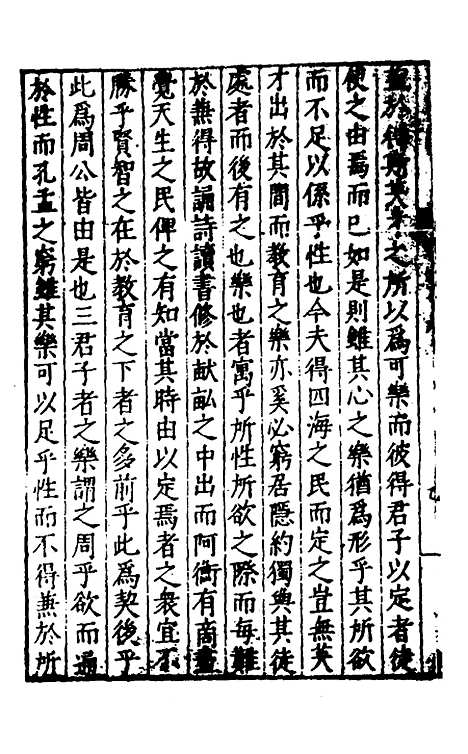 之所以爲可樂而彼得君子以定者徒
使之由焉而已如是則雖其心之樂猶爲形乎其所欲
而不足以係乎性也今夫得四海之民而定之豈無英
才出於其間而教育之樂亦奚必窮居隱約獨與其徒
處者而後有之也樂也者寓乎所性所欲之際而每難
於兼得故誦詩讀書修於畎畝之中出而阿衡有商盡
覺天生之民俾之有知當其時由以定焉者之衆宜不
勝乎賢智之在於教育之下者之多前乎此爲契後乎
此爲周公皆由是也三君子者之樂謂之周乎欲而遍
於性而孔孟之窮雖其樂可以足乎性而不得兼於所